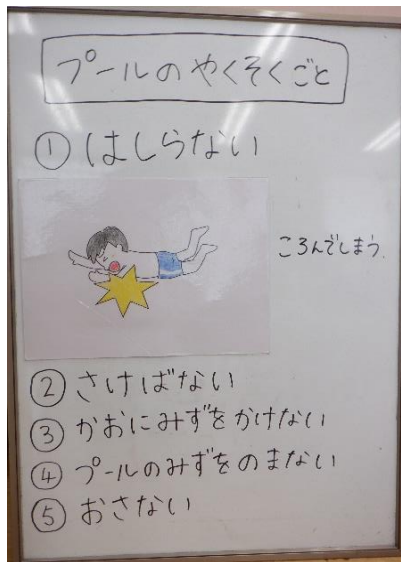 プールのやくそくごと
①はしらない
ころんでしまう。
②さけばない
③かおにみずをかけない
④プールのみずをのまない
⑤おさない